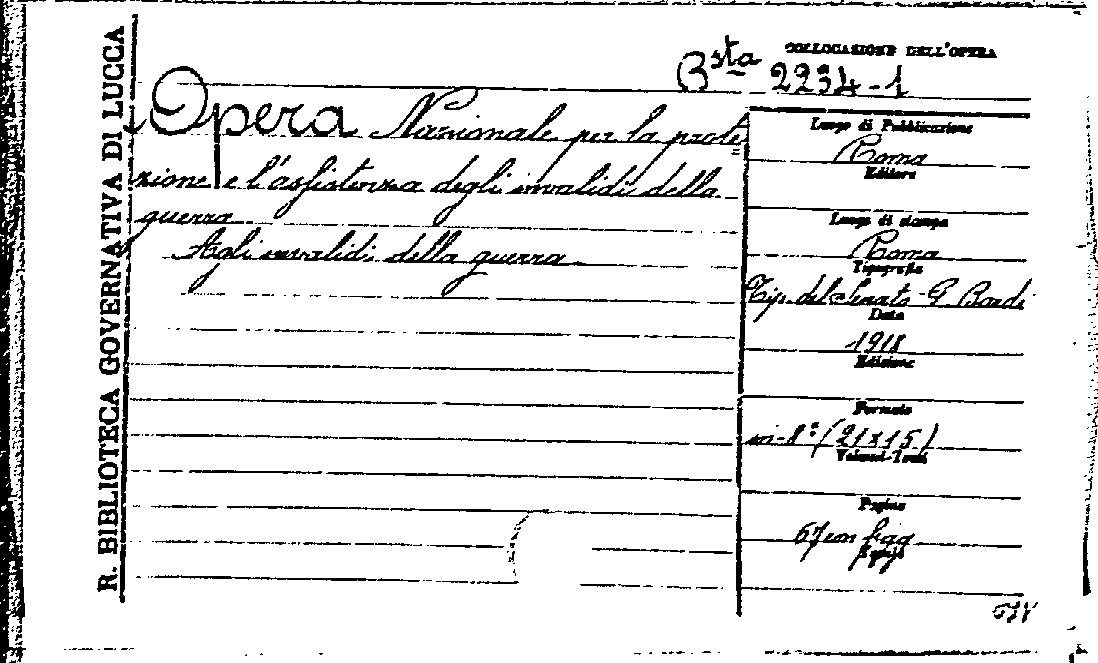 R. BIBLIOTECA GOVERNATIVA DI LUCCA
COLLOCAZIONE DELL'OPERA
Bsta 2234-1
Opera Nazionale per la prote=
zione e l'assistenza degli invalidi della
guerra
Agli invalidi della guerra.
Luogo di Pubblicazione
Roma
Editore
Luogo di stampa
Roma
Tipografia
Tip. del Senato G. Bardi
Data
1918
Edizione
Formato
in-8° (21x15)
Volumi-Tomi
Pagine
67 con figg.